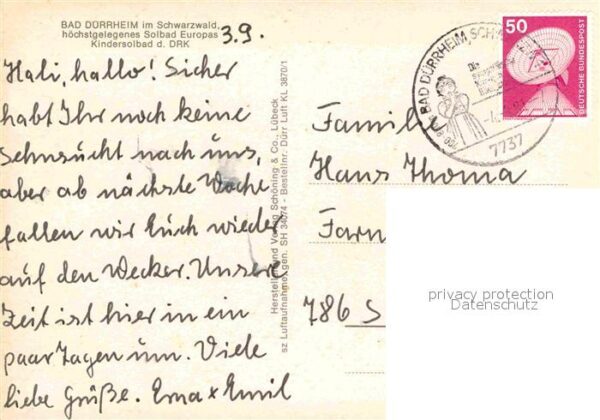 BAD DÜRRHEIM im Schwarzwald,
höchstgelegenes Solbad Europas
Kindersolbad d. DRK
3.9.
Hali, hallo! Sicher
habt Ihr noch keine
Sehnsucht nach uns,
aber ab nächste Woche
fallen wir Euch wieder
auf den Wecker. Unsere
Zeit ist hier in ein
paar Tagen um. Viele
liebe Grüße. Erna + Emil
Herstellung und Verlag Schöning & Co., Lübeck
sz Luftaufnahmegen. SH 340/74 - Bestellnr. Dürr Luft KL 3870/1
BAD DÜRRHEIM, SCH
7737
50
DEUTSCHE BUNDESPOST
Familie
Hans Thoma
Farn
786 S
privacy protection
Datenschutz